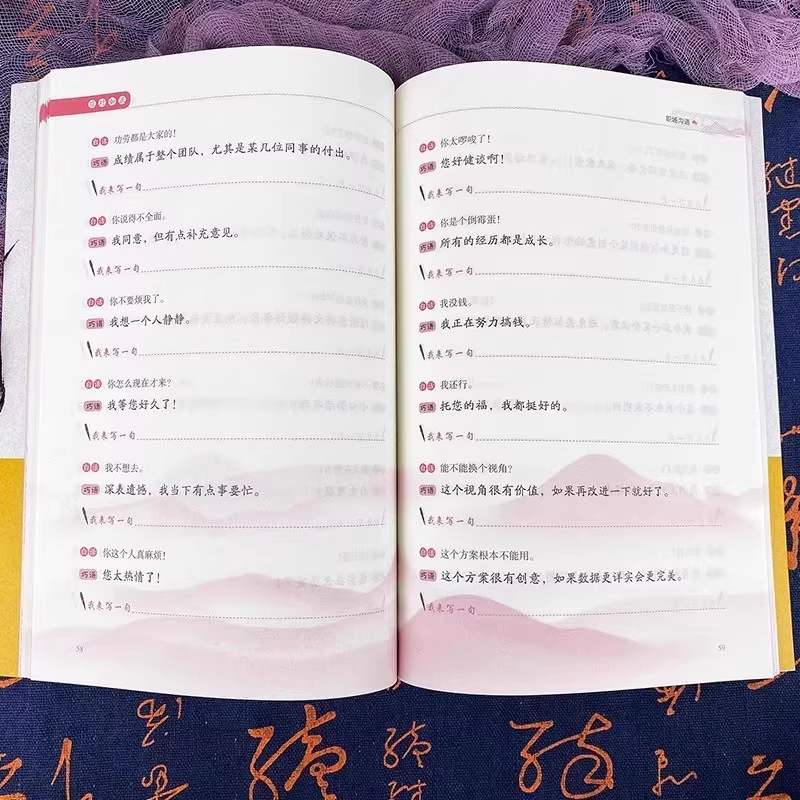 白话 功劳都是大家的！
巧语 成绩属于整个团队，尤其是某几位同事的付出。
我来写一句
白话 你说得不全面。
巧语 我同意，但有点补充意见。
我来写一句
白话 你不要烦我了。
巧语 我想一个人静静。
我来写一句
白话 你怎么现在才来？
巧语 我等您好久了！
我来写一句
白话 我不想去。
巧语 深表遗憾，我当下有点事要忙。
我来写一句
白话 你这个人真麻烦！
巧语 您太热情了！
我来写一句
58
职场沟通
白话 你太啰唆了！
巧语 您好健谈啊！
我来写一句
白话 你是个倒霉蛋！
巧语 所有的经历都是成长。
我来写一句
白话 我没钱。
巧语 我正在努力搞钱。
我来写一句
白话 我还行。
巧语 托您的福，我都挺好的。
我来写一句
白话 能不能换个视角？
巧语 这个视角很有价值，如果再改进一下就好了。
我来写一句
白话 这个方案根本不能用。
巧语 这个方案很有创意，如果数据更详实会更完美。
我来写一句
59